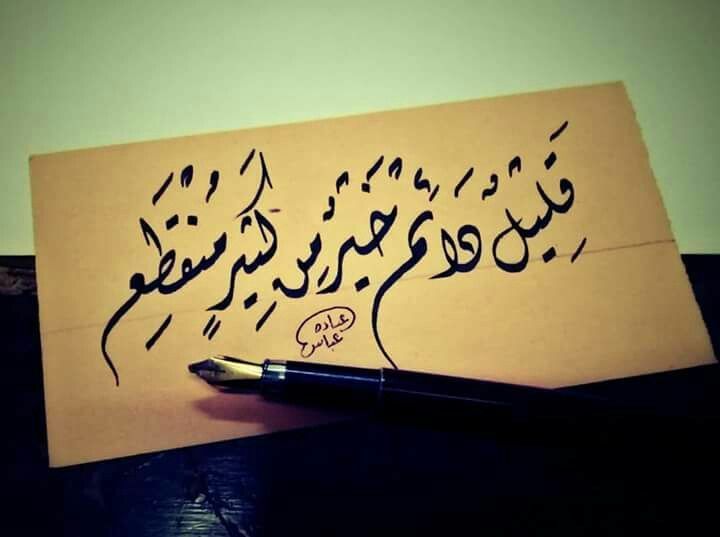 قَلِيلٌ دَائِمٌ خَيْرٌ مِنْ كَثِيرٍ مُنْقَطِعٍ
عباده
عباس